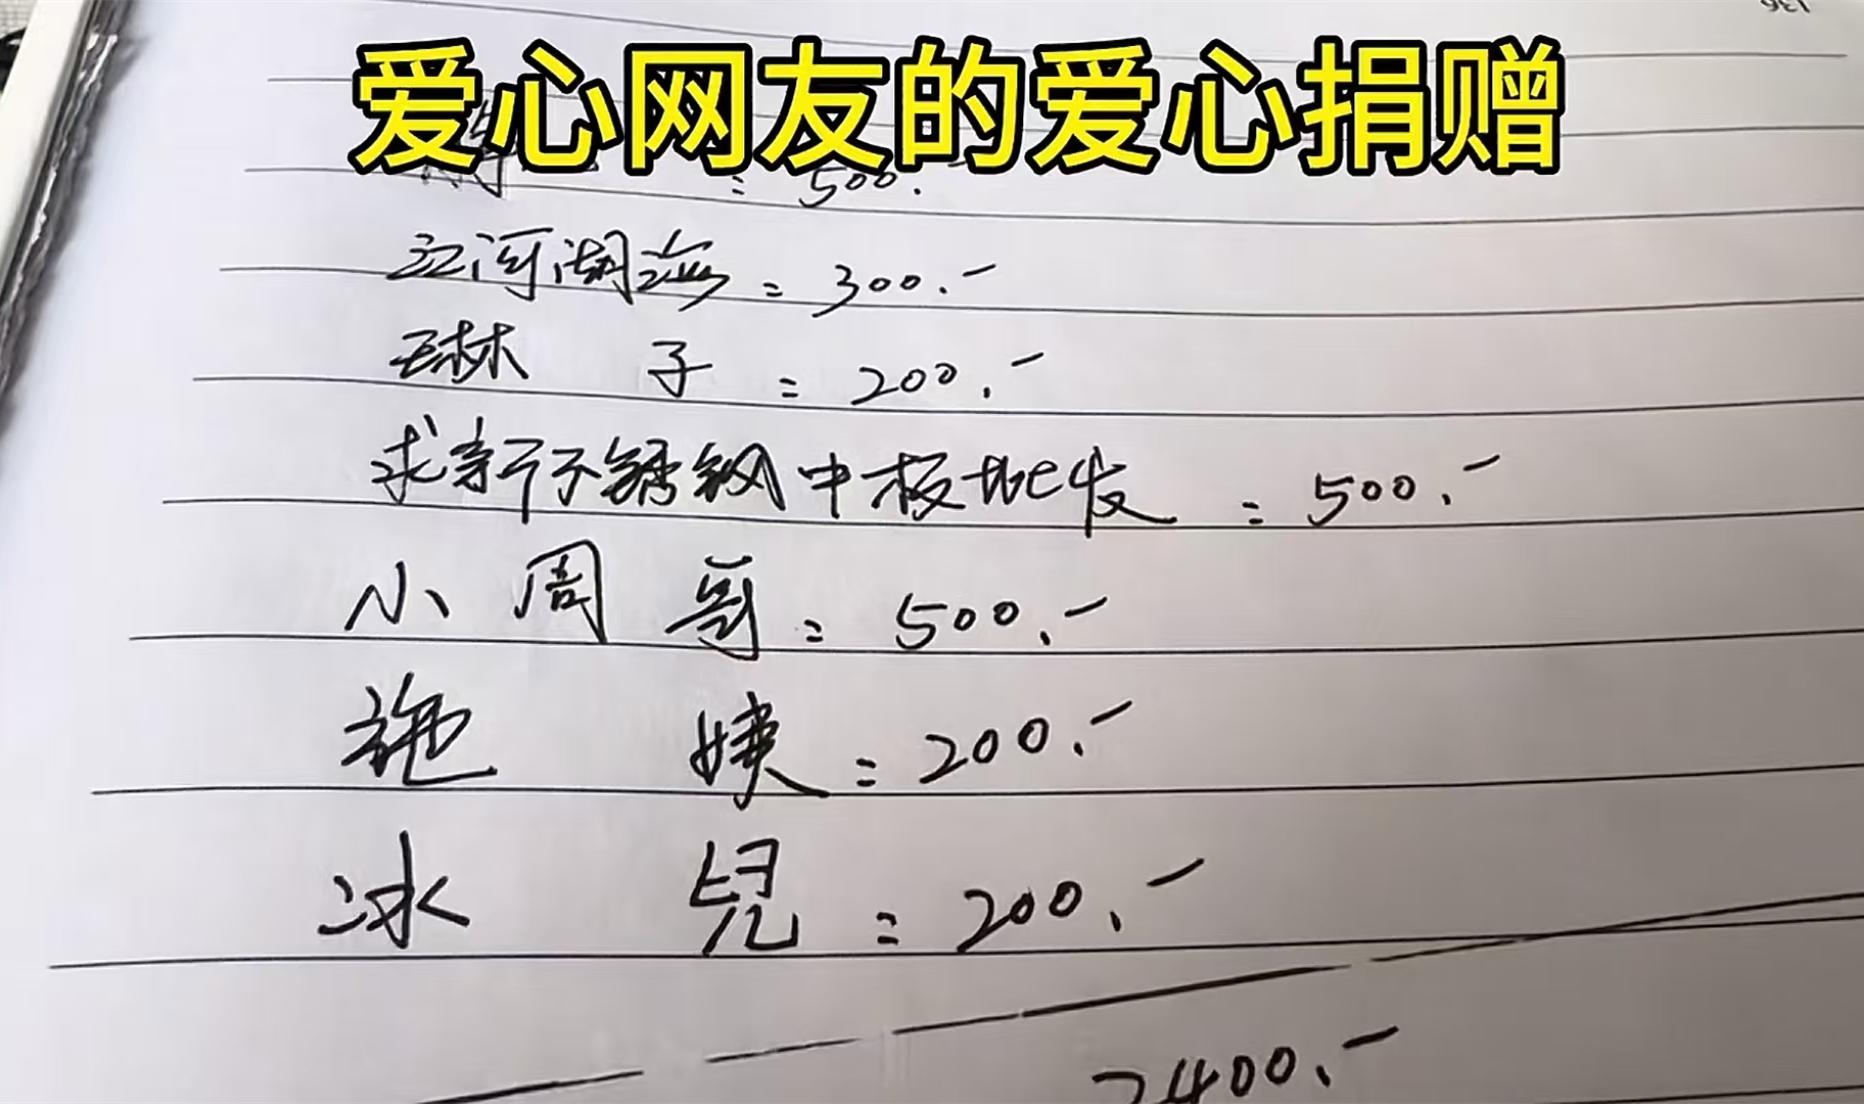 136
爱心网友的爱心捐赠
= 500.-
江河湖海 = 300.-
琳 子 = 200.-
求新不锈钢中板批发 = 500.-
小周哥 = 500.-
施 姨 = 200.-
冰 兒 = 200.-
2400.-